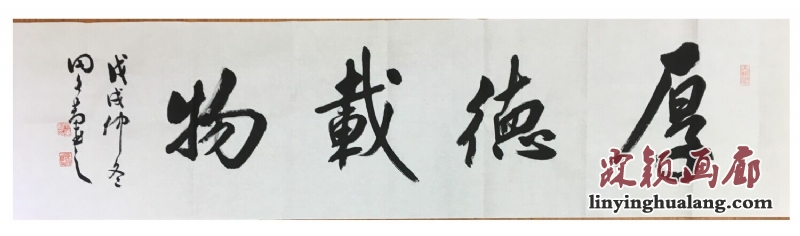 厚德載物
戊戌仲冬
霖颖画廊
linyinghualang.com